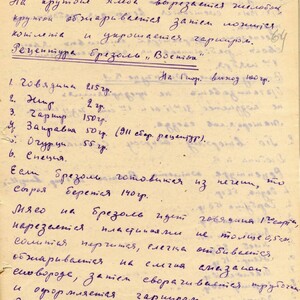 На крутоне хлеба вырезается
крутон обжаривается затем ложится
котлета и украшается гарниром.
64
Рецептура брезоль „Восток"
На 1 порц. выход 100 гр.
1. Говядина 215 гр.
2. Жир 2 гр.
3. Гарнир 150 гр.
4. Заправка 50 гр. (911 сбор. рецептур).
5. Огурцы 55 гр.
6. Специя.
Если брезоль готовится из печени, то
сырья берется 140 гр.
Мясо на брезоль идет говядина 1 сорта,
нарезается пластинами не толще 0,5 см,
солится перчится, слегка отбивается
обжаривается на слегка смазанной
сковороде, затем сворачивается трубочкой
и оформляется гарниром.